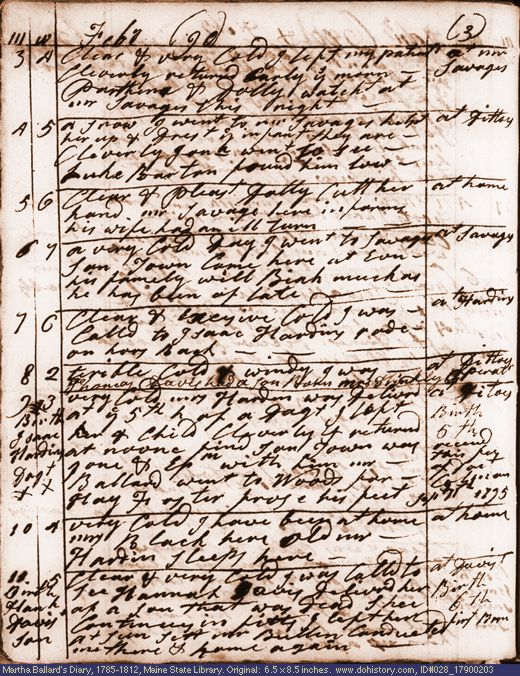 Feby (90 (3)
3 4 Clear & very Cold I left my patient at mr
Cleverly returned Early is morn Savages
Parthena & Dolly watcht at
mr Savages this night
4 5 a Snow I went to mr Savages helpt at Dittoes
her up & Drest infant they are
Cleverly went to see
Luke Barton found him low
5 6 Clear & Pleast Dolly Cutt her at home
hand mr Savage here informs
his wife had an ill turn
6 7 a very Cold Day I went to Savage at Savages
Son Town Came here at Evn
his family well Bink much as
he has been of late
7 Clear & Excesive Cold I was at Hardins
Calld to Isaac Hardins rode
on hors Back
8 2 terrible Cold & windy I was at Dittoes
Thomas Davis had a son Born
9 3 very Cold mrs Hardin was Deliverd at Dittoes
Birth at ye 5th h of a Dagt I left Birth
Isaac Her & Child Cleverly & returned 5th
Hardins at noone find Son Town was
Dagt gone & Epm with him mr
Ballard went to Woods for
Hay Foster froze his feet Sept 1795
10 4 very Cold I have been at home at home
mrs Black here old mr
Hardin Sleeps here
11 5 Clear & very Cold I was Calld to at Davis
Birth See Hannah Davis Deliverd her Birth
Hanh of a Son that was Dead I her 6th
Davis Continues in fitts I left her first Born
Son at Sun Sett mr Butlin Conducted
me there & home again
Martha Ballard's Diary, 1785-1812, Maine State Library. Original: 6.5 x 8.5 inches. www.dohistory.com, ID#028_17900203